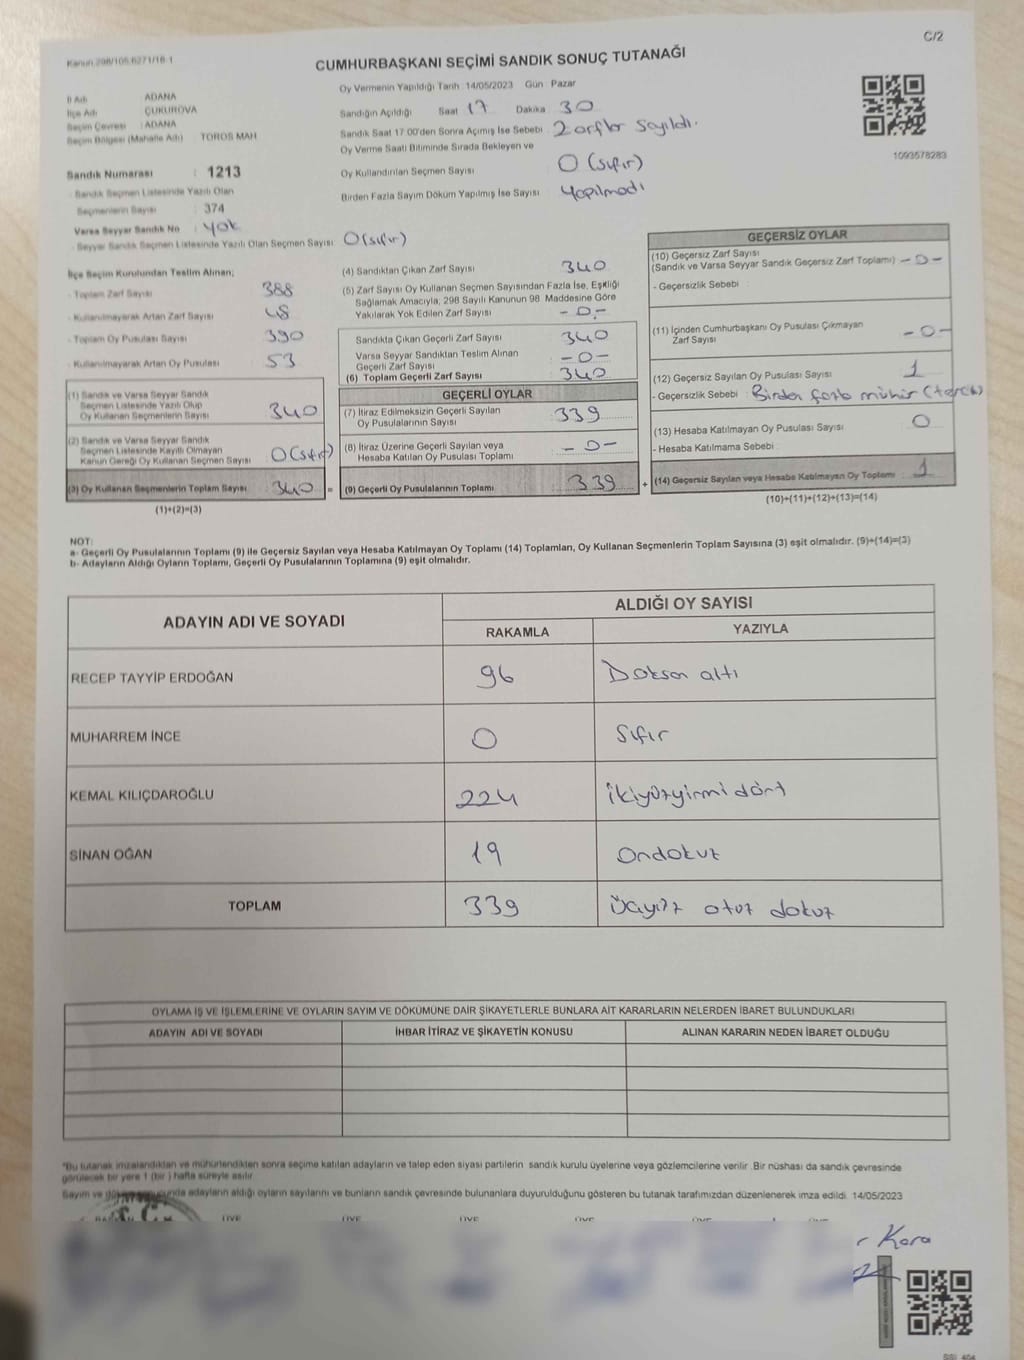 C/2
Kanun:298/105,6271/18-1
CUMHURBAŞKANI SEÇİMİ SANDIK SONUÇ TUTANAĞI
İl Adı : ADANA
İlçe Adı : ÇUKUROVA
Seçim Çevresi : ADANA
Seçim Bölgesi (Mahalle Adı) : TOROS MAH
Sandık Numarası : 1213
- Sandık Seçmen Listesinde Yazılı Olan
Seçmenlerin Sayısı : 374
Varsa Seyyar Sandık No : yok
- Seyyar Sandık Seçmen Listesinde Yazılı Olan Seçmen Sayısı : 0 (sıfır)
Oy Vermenin Yapıldığı Tarih :14/05/2023 Gün Pazar
Sandığın Açıldığı Saat 17 Dakika 30
Sandık Saat 17:00'den Sonra Açılmış İse Sebebi : Zarflar sayıldı.
Oy Verme Saati Bitiminde Sırada Bekleyen ve
Oy Kullandırılan Seçmen Sayısı : 0 (sıfır)
Birden Fazla Sayım Döküm Yapılmış İse Sayısı : Yapılmadı
1093578283
İlçe Seçim Kurulundan Teslim Alınan;
- Toplam Zarf Sayısı : 388
- Kullanılmayarak Artan Zarf Sayısı : 48
- Toplam Oy Pusulası Sayısı : 390
- Kullanılmayarak Artan Oy Pusulası : 53
(1) Sandık ve Varsa Seyyar Sandık
Seçmen Listesinde Yazılı Olup
Oy Kullanan Seçmenlerin Sayısı : 340
(2) Sandık ve Varsa Seyyar Sandık
Seçmen Listesinde Kayıtlı Olmayan
Kanun Gereği Oy Kullanan Seçmen Sayısı : 0 (sıfır)
(3) Oy Kullanan Seçmenlerin Toplam Sayısı : 340 =
(1)+(2)=(3)
(4) Sandıktan Çıkan Zarf Sayısı : 340
(5) Zarf Sayısı Oy Kullanan Seçmen Sayısından Fazla İse, Eşitliği
Sağlamak Amacıyla; 298 Sayılı Kanunun 98. Maddesine Göre
Yakılarak Yok Edilen Zarf Sayısı : -0-
Sandıkta Çıkan Geçerli Zarf Sayısı : 340
Varsa Seyyar Sandıktan Teslim Alınan
Geçerli Zarf Sayısı : -0-
(6) Toplam Geçerli Zarf Sayısı : 340
GEÇERLİ OYLAR
(7) İtiraz Edilmeksizin Geçerli Sayılan
Oy Pusulalarının Sayısı : 339
(8) İtiraz Üzerine Geçerli Sayılan veya
Hesaba Katılan Oy Pusulası Toplamı : -0-
(9) Geçerli Oy Pusulalarının Toplamı : 339 +
GEÇERSİZ OYLAR
(10) Geçersiz Zarf Sayısı
(Sandık ve Varsa Seyyar Sandık Geçersiz Zarf Toplamı) : -0-
- Geçersizlik Sebebi :
(11) İçinden Cumhurbaşkanı Oy Pusulası Çıkmayan
Zarf Sayısı : -0-
(12) Geçersiz Sayılan Oy Pusulası Sayısı : 1
- Geçersizlik Sebebi : Birden fazla mühür
(13) Hesaba Katılmayan Oy Pusulası Sayısı : 0
- Hesaba Katılmama Sebebi :
(14) Geçersiz Sayılan veya Hesaba Katılmayan Oy Toplamı : 1
(10)+(11)+(12)+(13)=(14)
NOT:
a- Geçerli Oy Pusulalarının Toplamı (9) ile Geçersiz Sayılan veya Hesaba Katılmayan Oy Toplamı (14) Toplamları, Oy Kullanan Seçmenlerin Toplam Sayısına (3) eşit olmalıdır. (9)+(14)=(3)
b- Adayların Aldığı Oyların Toplamı, Geçerli Oy Pusulalarının Toplamına (9) eşit olmalıdır.
ADAYIN ADI VE SOYADI ALDIĞI OY SAYISI
RAKAMLA YAZIYLA
RECEP TAYYİP ERDOĞAN 96 Doksan altı
MUHARREM İNCE 0 Sıfır
KEMAL KILIÇDAROĞLU 224 ikiyüzyirmi dört
SİNAN OĞAN 19 Ondokuz
TOPLAM 339 Üçyüz otuz dokuz
OYLAMA İŞ VE İŞLEMLERİNE VE OYLARIN SAYIM VE DÖKÜMÜNE DAİR ŞİKAYETLERLE BUNLARA AİT KARARLARIN NELERDEN İBARET BULUNDUKLARI
ADAYIN ADI VE SOYADI İHBAR İTİRAZ VE ŞİKAYETİN KONUSU ALINAN KARARIN NEDEN İBARET OLDUĞU
*Bu tutanak imzalandıktan ve mühürlendikten sonra seçime katılan adayların ve talep eden siyasi partilerin sandık kurulu üyelerine veya gözlemcilerine verilir. Bir nüshası da sandık çevresinde
görülecek bir yere 1 (bir ) hafta süreyle asılır.
Sayım ve döküm sonucunda adayların aldığı oyların sayılarını ve bunların sandık çevresinde bulunanlara duyurulduğunu gösteren bu tutanak tarafımızdan düzenlenerek imza edildi. 14/05/2023
T.C.
ÜYE ÜYE ÜYE ÜYE ÜYE
Kara